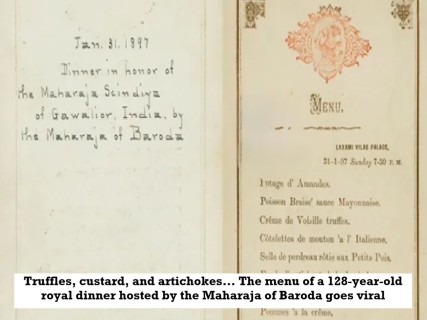 Jan. 31. 1897
Dinner in honor of
the Maharaja Scindiya
of Gawalior, India, by
the Maharaja of Baroda
MENU.
LAXAMI VILAS PALACE,
31-1-97 Sunday 7-30 P. M.
Potage d' Amandes.
Poisson Braise' sauce Mayonnaise.
Crême de Volaille truffes.
Côtelettes de mouton 'a l' Italienne.
Selle de perdreau rôtie aux Petits Pois.
'a la crême,
Truffles, custard, and artichokes... The menu of a 128-year-old
royal dinner hosted by the Maharaja of Baroda goes viral